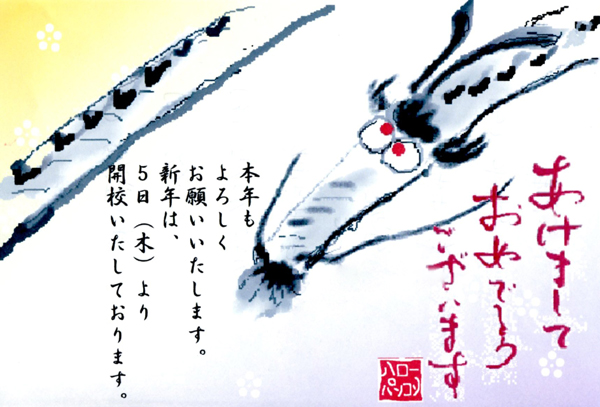 あけまして
おめでとう
ございます
本年も
よろしく
お願いいたします。
新年は、
５日（木）より
開校いたしております。
ハロー
パソコン